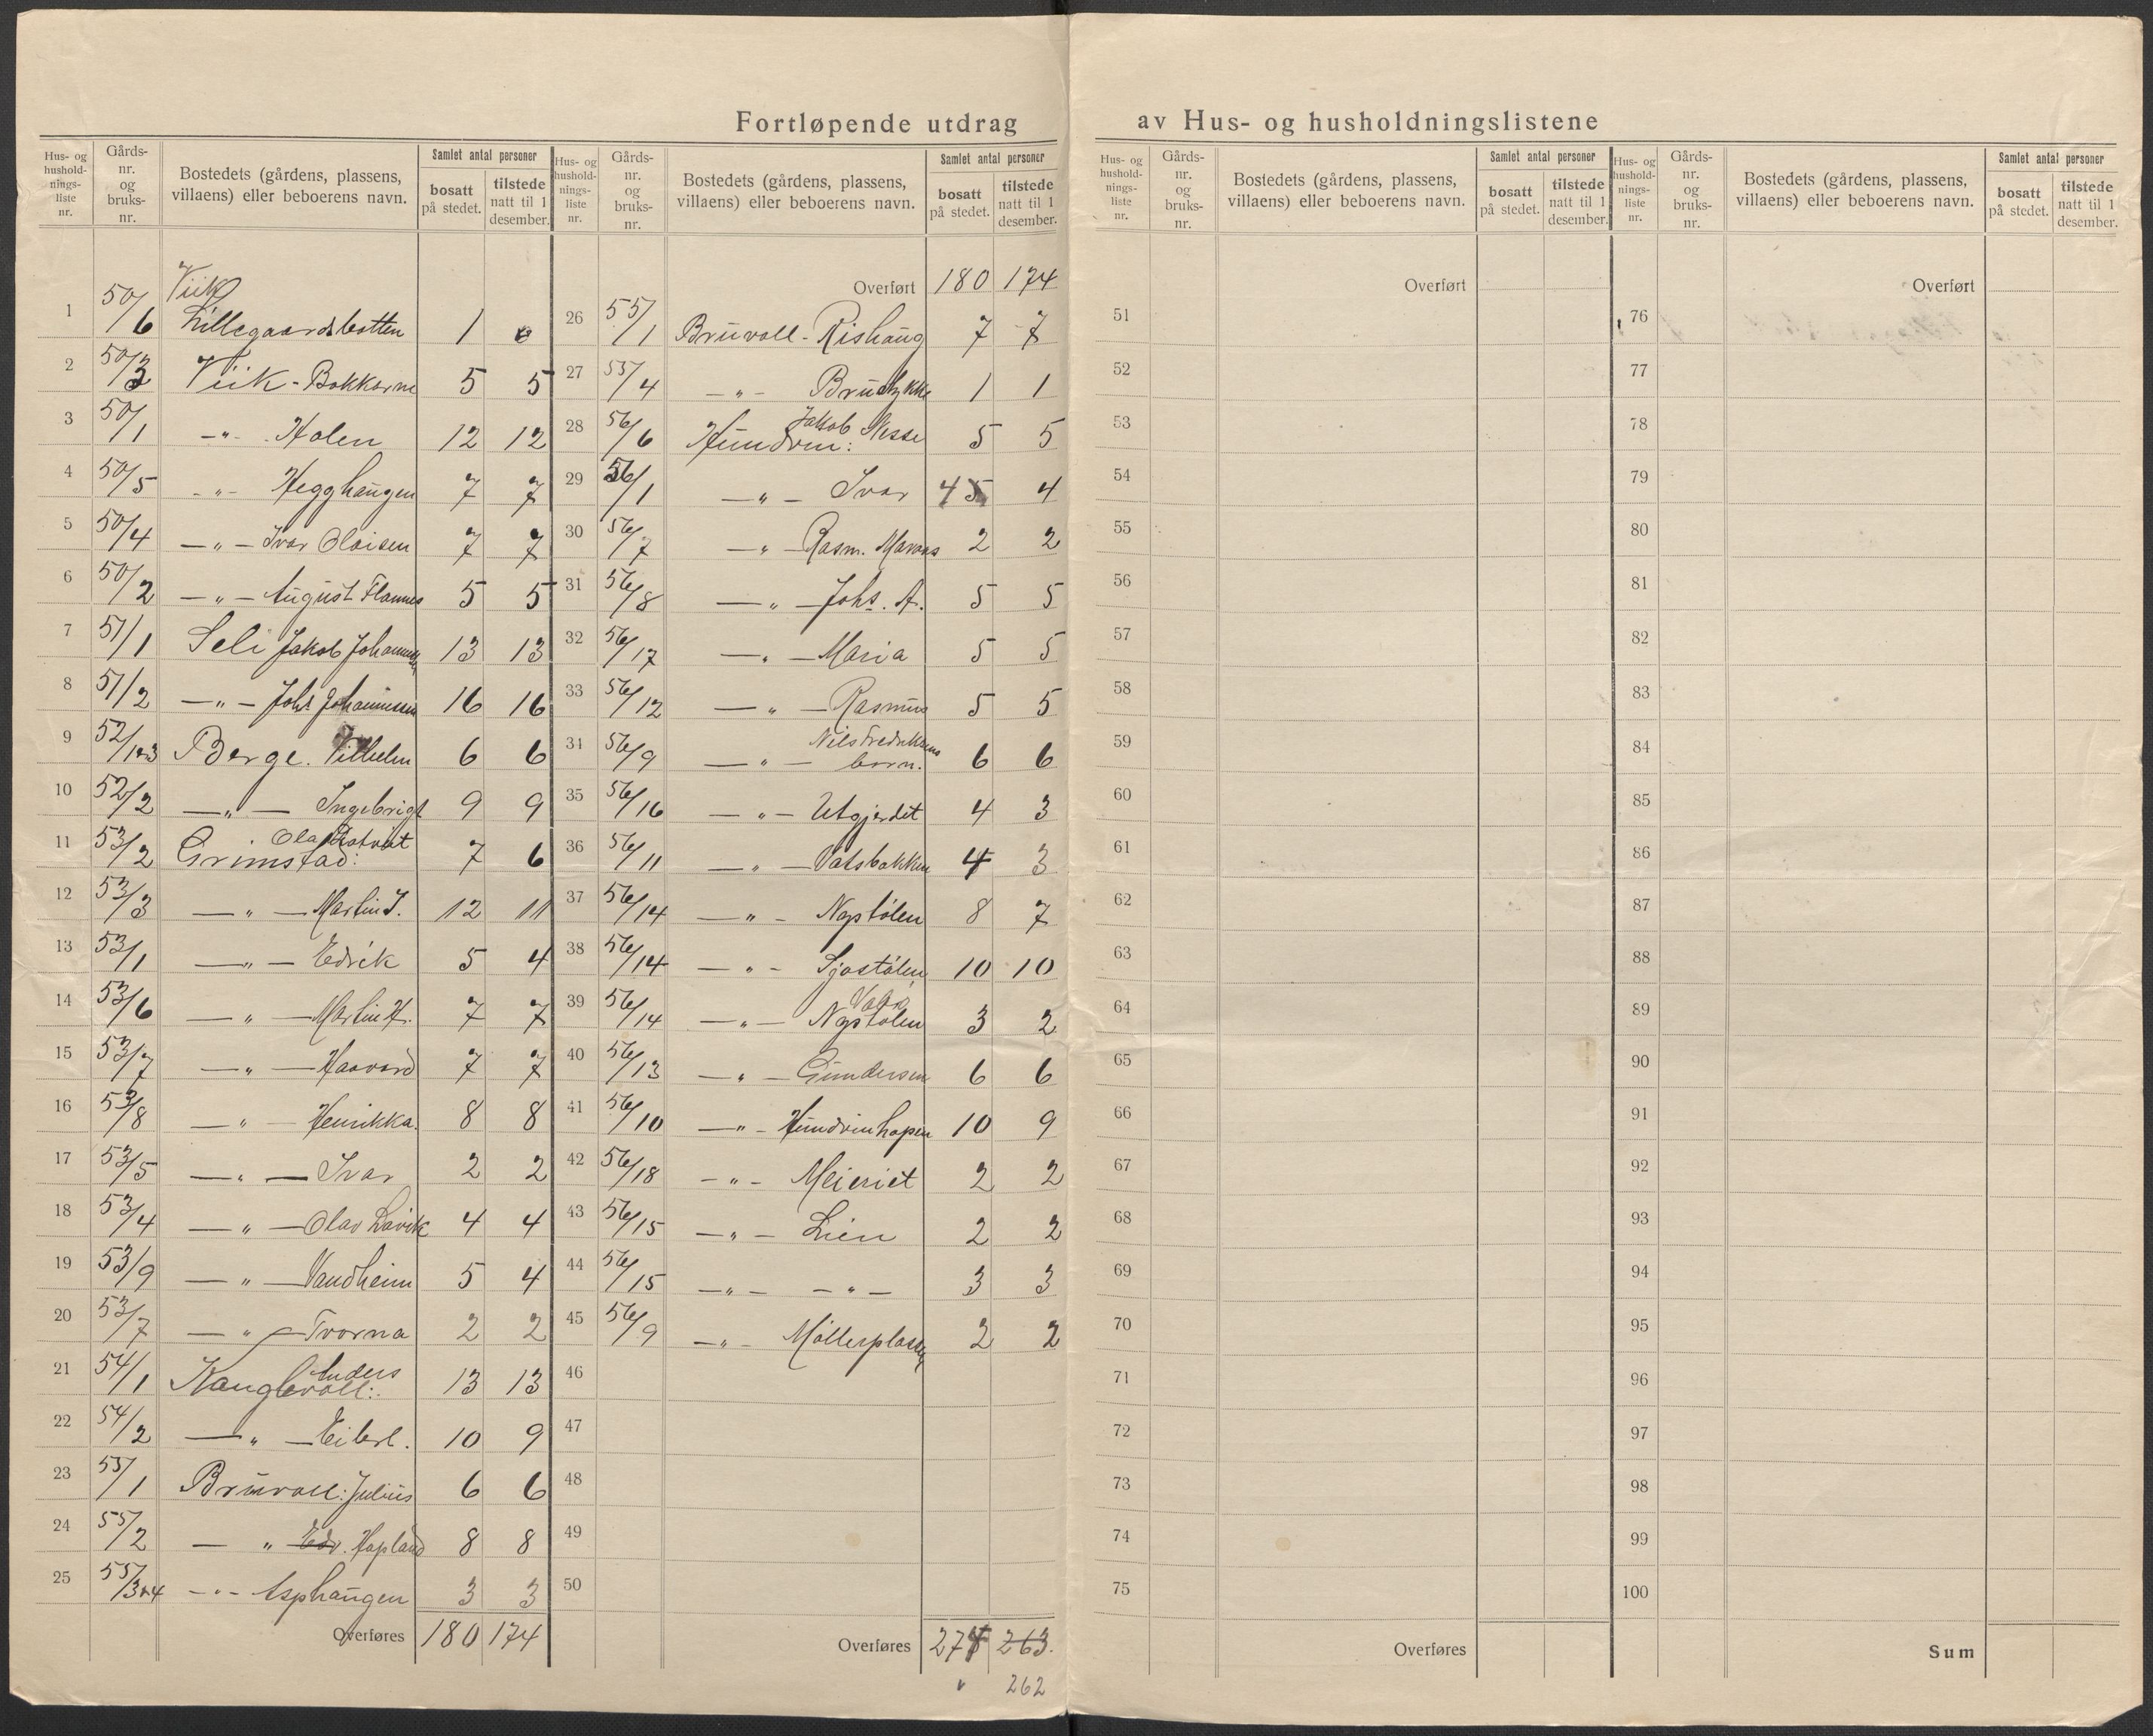 Fortløpende utdrag av Hus- og husholdningslistene
Hus- og husholdnings-liste nr. Gårds-nr. og bruks-nr. Bostedets (gårdens, plassens, villaens) eller beboerens navn. Samlet antal personer bosatt på stedet. tilstede natt til 1 desember.
Viik
1 50/6 Lillegaardsbotten 1 0
2 50/3 Viik - Bakkarne 5 5
3 50/1 -"- Holen 12 12
4 50/5 -"- Hegghaugen 7 7
5 50/4 -"- Ivar Olaisen 7 7
6 50/2 -"- August Flannes 5 5
7 51/1 Seli Jakob Johannessen 13 13
8 51/2 -"- Johs Johannessen 16 16
9 52/1+3 Berge. Vilhelm 6 6
10 52/2 -"- Ingebrigt 9 9
11 53/2 Grimstad: Ola 7 6
12 53/3 -"- Martin J. 12 11
13 53/1 -"- Edvik 5 4
14 53/6 -"- Martin H. 7 7
15 53/7 -"- Haavard 7 7
16 53/8 -"- Henrikka. 8 8
17 53/5 -"- Ivar 2 2
18 53/4 -"- Olav Lavik 4 4
19 53/9 -"- Vandheim 5 4
20 53/7 -"- Tvorna 2 2
21 54/1 Kanglevoll: Anders 13 13
22 54/2 -"- Eilert. 10 9
23 55/1 Bruvoll: Julius 6 6
24 55/2 -"- Edv. Hopland 8 8
25 55/3+4 -"- Asphaugen 3 3
Overføres 180 174
Hus- og husholdnings-liste nr. Gårds-nr. og bruks-nr. Bostedets (gårdens, plassens, villaens) eller beboerens navn. Samlet antal personer bosatt på stedet. tilstede natt til 1 desember.
Overført 180 174
26 55/1 Bruvoll - Rishaug 7 7
27 55/4 -"- Brustykke 1 1
28 56/6 Hundvin: Jakob Nesse 5 5
29 56/1 -"- Ivar 4 5 4
30 56/7 -"- Rasm. 2 2
31 56/8 -"- Johs. A. 5 5
32 56/17 -"- Maria 5 5
33 56/12 -"- Rasmus 5 5
34 56/9 -"- Nils Fredriksens born. 6 6
35 56/16 -"- Utgjerdet 4 3
36 56/11 -"- Vatsbakken 4 3
37 56/14 -"- Nystølen 8 7
38 56/14 -"- Sjostølen 10 10
39 56/14 -"- Nystølen 3 2
40 56/13 -"- Gundersen 6 6
41 56/10 -"- Hundvinhopen 10 9
42 56/18 -"- Meieriet 2 2
43 56/15 -"- Lien 2 2
44 56/15 -"- -"- 3 3
45 56/9 -"- Møllerplassen 2 2
46
47
48
49
50
Overføres 274 263.
262
Hus- og husholdnings-liste nr. Gårds-nr. og bruks-nr. Bostedets (gårdens, plassens, villaens) eller beboerens navn. Samlet antal personer bosatt på stedet. tilstede natt til 1 desember.
Overført
51
52
53
54
55
56
57
58
59
60
61
62
63
64
65
66
67
68
69
70
71
72
73
74
75
Overføres
Hus- og husholdnings-liste nr. Gårds-nr. og bruks-nr. Bostedets (gårdens, plassens, villaens) eller beboerens navn. Samlet antal personer bosatt på stedet. tilstede natt til 1 desember.
Overført
76
77
78
79
80
81
82
83
84
85
86
87
88
89
90
91
92
93
94
95
96
97
98
99
100
Sum